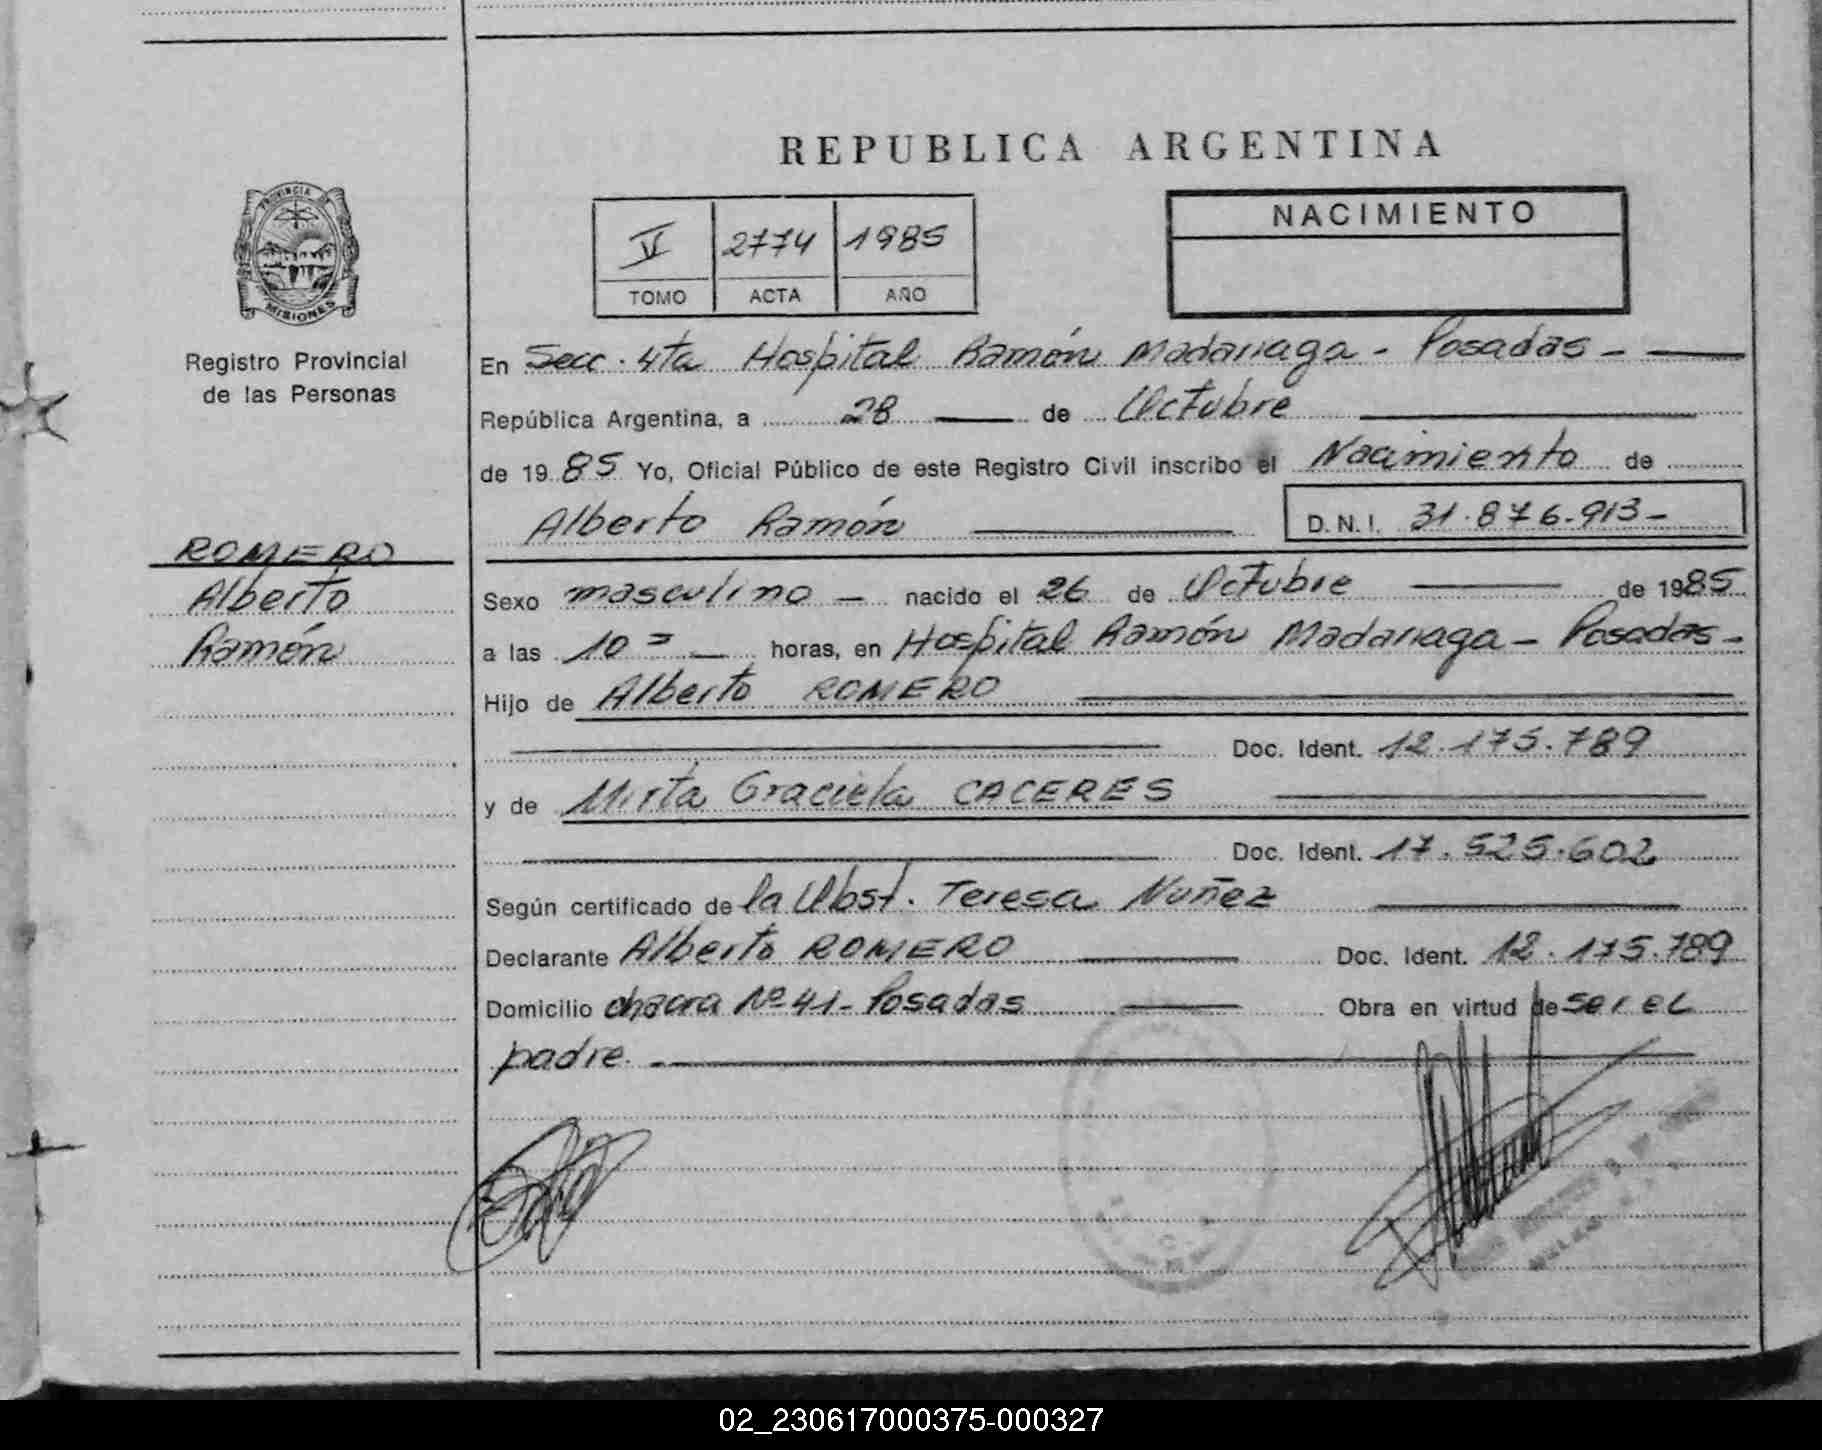 REPUBLICA ARGENTINA
PROVINCIA DE
MISIONES
Registro Provincial
de las Personas
V 2774 1985
TOMO ACTA AÑO
NACIMIENTO
En Secc. 4ta Hospital Ramón Madariaga - Posadas -
República Argentina, a 28 de Octubre
de 1985 Yo, Oficial Público de este Registro Civil inscribo el Nacimiento de
Alberto Ramón D.N.I. 31.876.913-
ROMERO
Alberto
Ramón
Sexo masculino - nacido el 26 de Octubre de 1985
a las 10= horas, en Hospital Ramón Madariaga - Posadas -
Hijo de Alberto ROMERO
Doc. Ident. 12.175.789
y de Mirta Graciela CACERES
Doc. Ident. 17.525.602
Según certificado de la Obst. Teresa Nuñez
Declarante Alberto ROMERO Doc. Ident. 12.175.789
Domicilio chacra Nº 41 - Posadas Obra en virtud de ser el
padre.
02_230617000375-000327